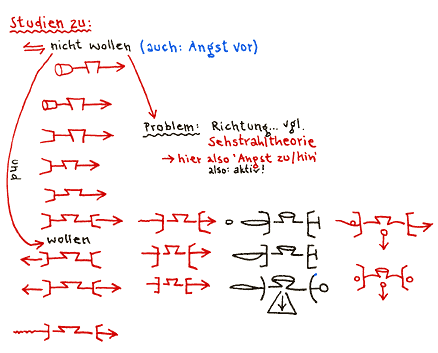 Studien zu:
nicht wollen (auch: Angst vor)
Problem: Richtung... vgl.
Sehstrahltheorie
→ hier also 'Angst zu/hin'
also: aktiv!
und
wollen